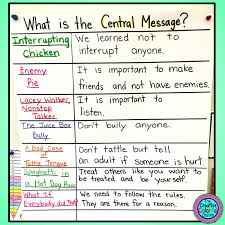 What is the Central Message?
Interrupting
Chicken
We learned not to
interrupt anyone.
Enemy
Pie
It is important to make
friends and not have enemies.
Lacey Walker,
Nonstop
Talker
It is important to
listen.
The Juice Box
Bully
Don't bully anyone.
A Bad Case
of
Tattle Tongue
Don't tattle but tell
an adult if someone is hurt.
Spaghetti in
a Hot Dog Bun
Treat others like you want to
be treated and be yourself.
What If
Everybody did That?
We need to follow the rules.
They are there for a reason.